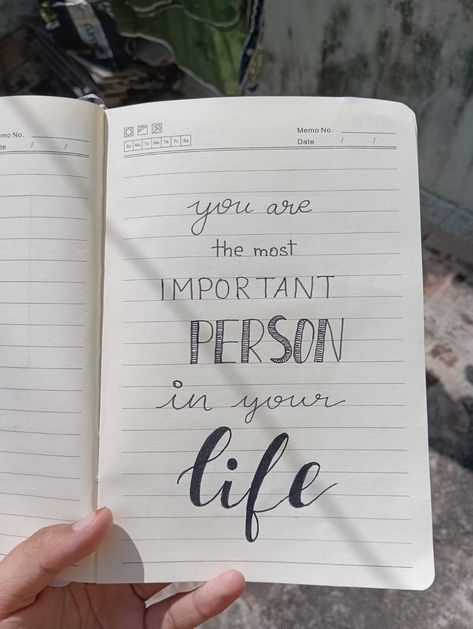 emo No.
te / /
Su Mo Tu We Th Fr Sa
Memo No.
Date / /
you are
the most
IMPORTANT
PERSON
in your
life